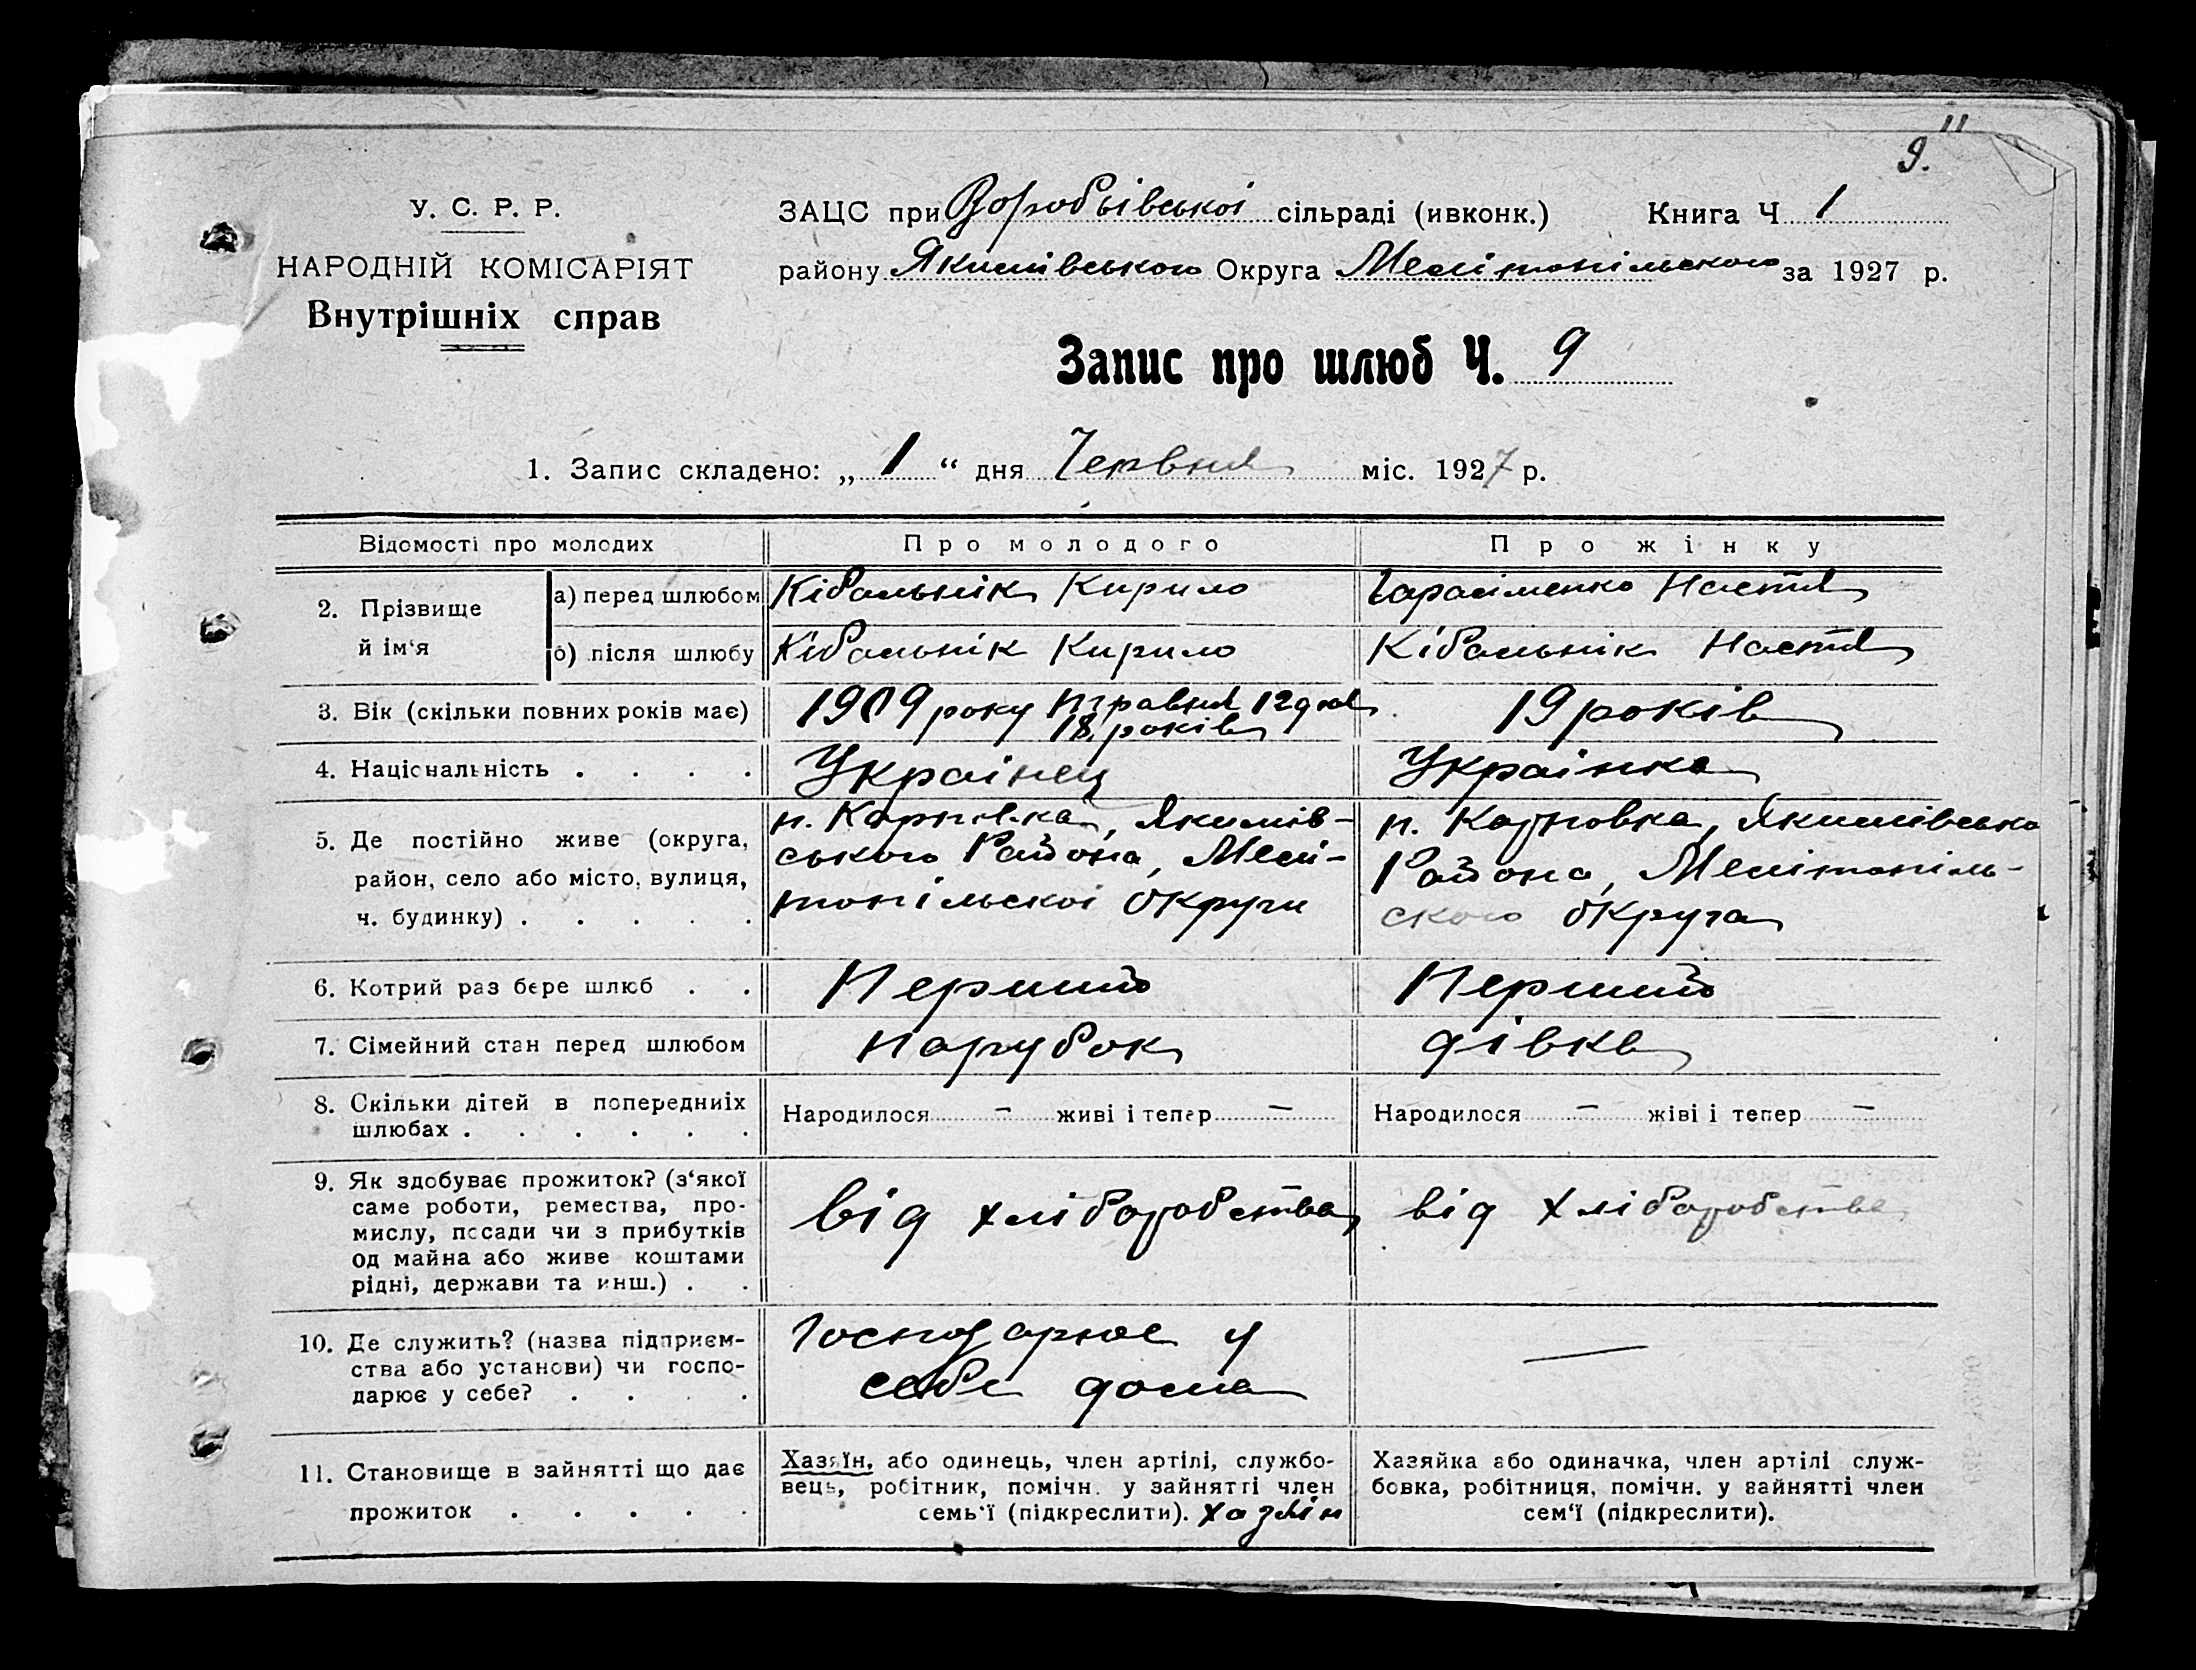 11
9.
У. С. Р. Р.
НАРОДНІЙ КОМІСАРІЯТ
Внутрішніх справ
ЗАЦС при Воробьівськоі сільраді (ивконк.) Книга Ч 1
району Якимівського Округа Мелітопільского за 1927 р.
Запис про шлюб Ч. 9
1. Запис складено: „ 1 “ дня Червня міс. 1927 р.
Відомості про молодих
Про молодого
Про жінку
2. Прізвище й ім‘я
а) перед шлюбом
Кібальнік Кирило
Гарасіменко Настя
б) після шлюбу
Кібальнік Кирило
Кібальнік Настя
3. Вік (скільки повних років має)
1909 року травня 12 дня
18 років
19 років
4. Національність . . . .
Украінец
Украінка
5. Де постійно живе (округа,
район, село або місто, вулиця,
ч. будинку) . . . . .
п. Карповка, Якимів-
ського Района, Мелі-
топільскоі округи
п. Карповка, Якимівсько
Района, Мелітопіль-
ского округа
6. Котрий раз бере шлюб . .
Перший
Перший
7. Сімейний стан перед шлюбом
парубок
дівка
8. Скільки дітей в попередниіх
шлюбах . . . . . .
Народилося – живі і тепер –
Народилося – жіві і тепер –
9. Як здобуває прожиток? (з‘якої
саме роботи, ремества, про-
мислу, посади чи з прибутків
од майна або живе коштами
рідні, держави та инш.) . .
від хліборобства
від хліборобства
10. Де служить? (назва підприєм-
ства або установи) чи госпо-
дарює у себе? . . . .
Господарює у
себе дома
—
11. Становище в зайнятті що дає
прожиток . . . . .
Хазяїн, або одинець, член артілі, службо-
вець, робітник, помічн. у зайнятті член
семь‘ї (підкреслити). хазяін
Хазяйка або одиначка, член артілі служ-
бовка, робітниця, помічн. у зайнятті член
сем‘ї (підкреслити).